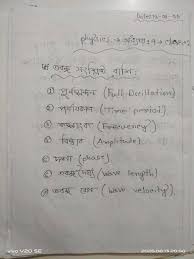 physics →
তরঙ্গ সংশ্লিষ্ট রাশি:
① পূর্ণস্পন্দন (Full Oscillation)
② পর্যায়কাল (Time period)
③ কম্পাংক (Frequency)
④ বিস্তার (Amplitude)
⑤ দশা (phase)
⑥ তরঙ্গদৈর্ঘ্য (wave length)
⑦ তরঙ্গ বেগ (wave velocity)
vivo V20 SE